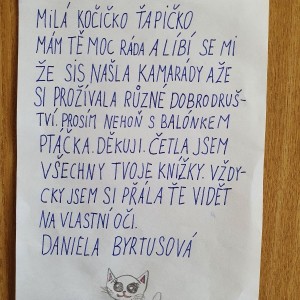 MILÁ KOČIČKO ŤAPIČKO
MÁM TĚ MOC RÁDA A LÍBÍ SE MI
ŽE SIS NAŠLA KAMARÁDY A ŽE
SI PROŽÍVALA RŮZNÉ DOBRODRUŠ-
TVÍ. PROSÍM NEHOŇ S BALÓNKEM
PTÁČKA. DĚKUJI. ČETLA JSEM
VŠECHNY TVOJE KNÍŽKY. VŽDY-
CKY JSEM SI PŘÁLA TE VIDĚT
NA VLASTNÍ OČI.
DANIELA BYRTUSOVÁ